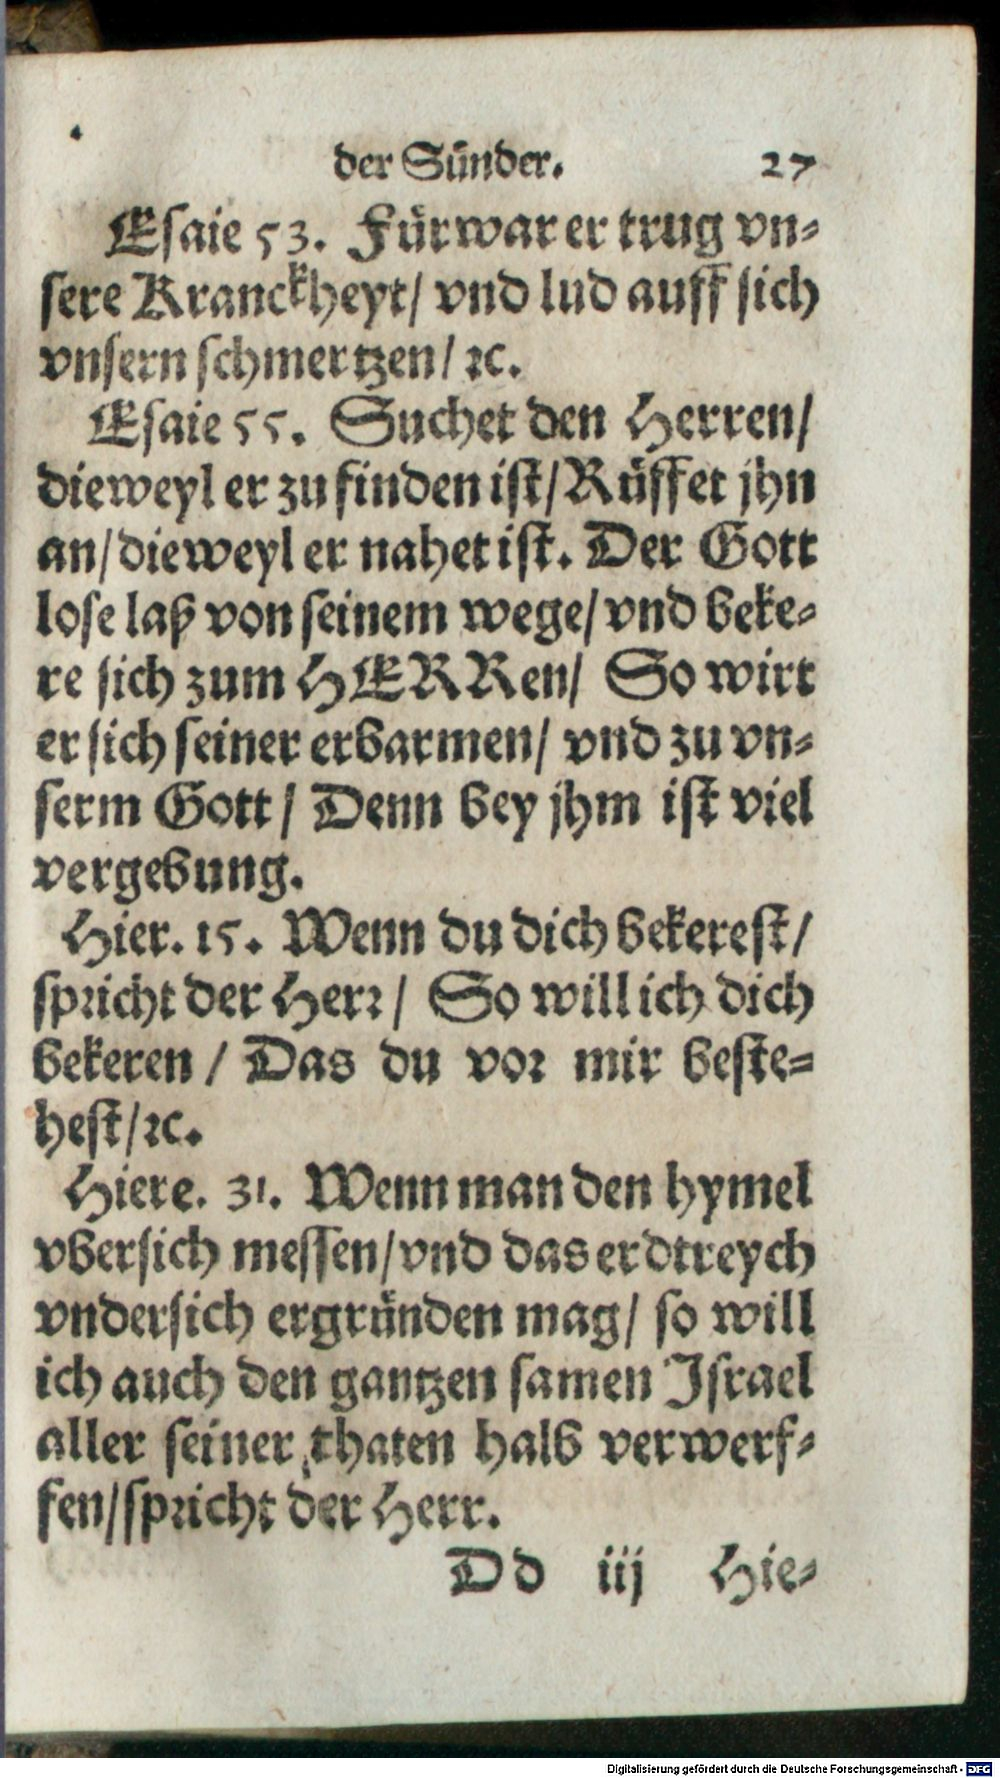 der Sünder. 27
Esaie 53. Fürwar er trug vn-
sere Kranckheyt/ vnd lud auff sich
vnsern schmertzen/ ꝛc.
Esaie 55. Suchet den Herren/
dieweyl er zu finden ist/ Rüffet jhn
an/ dieweyl er nahet ist. Der Gott
lose laß von seinem wege/ vnd beke-
re sich zum HERRen/ So wirt
er sich seiner erbarmen/ vnd zu vn-
serm Gott/ Denn bey jhm ist viel
vergebung.
Hier. 15. Wenn du dich bekerest/
spricht der Herr/ So will ich dich
bekeren/ Das du vor mir beste-
hest/ ꝛc.
Hiere. 31. Wenn man den hymel
vbersich messen/ vnd das erdtreych
vndersich ergründen mag/ so will
ich auch den gantzen samen Israel
aller seiner thaten halb verwerf-
fen/ spricht der Herr.
Dd iij Hie-
Digitalisierung gefördert durch die Deutsche Forschungsgemeinschaft - DFG